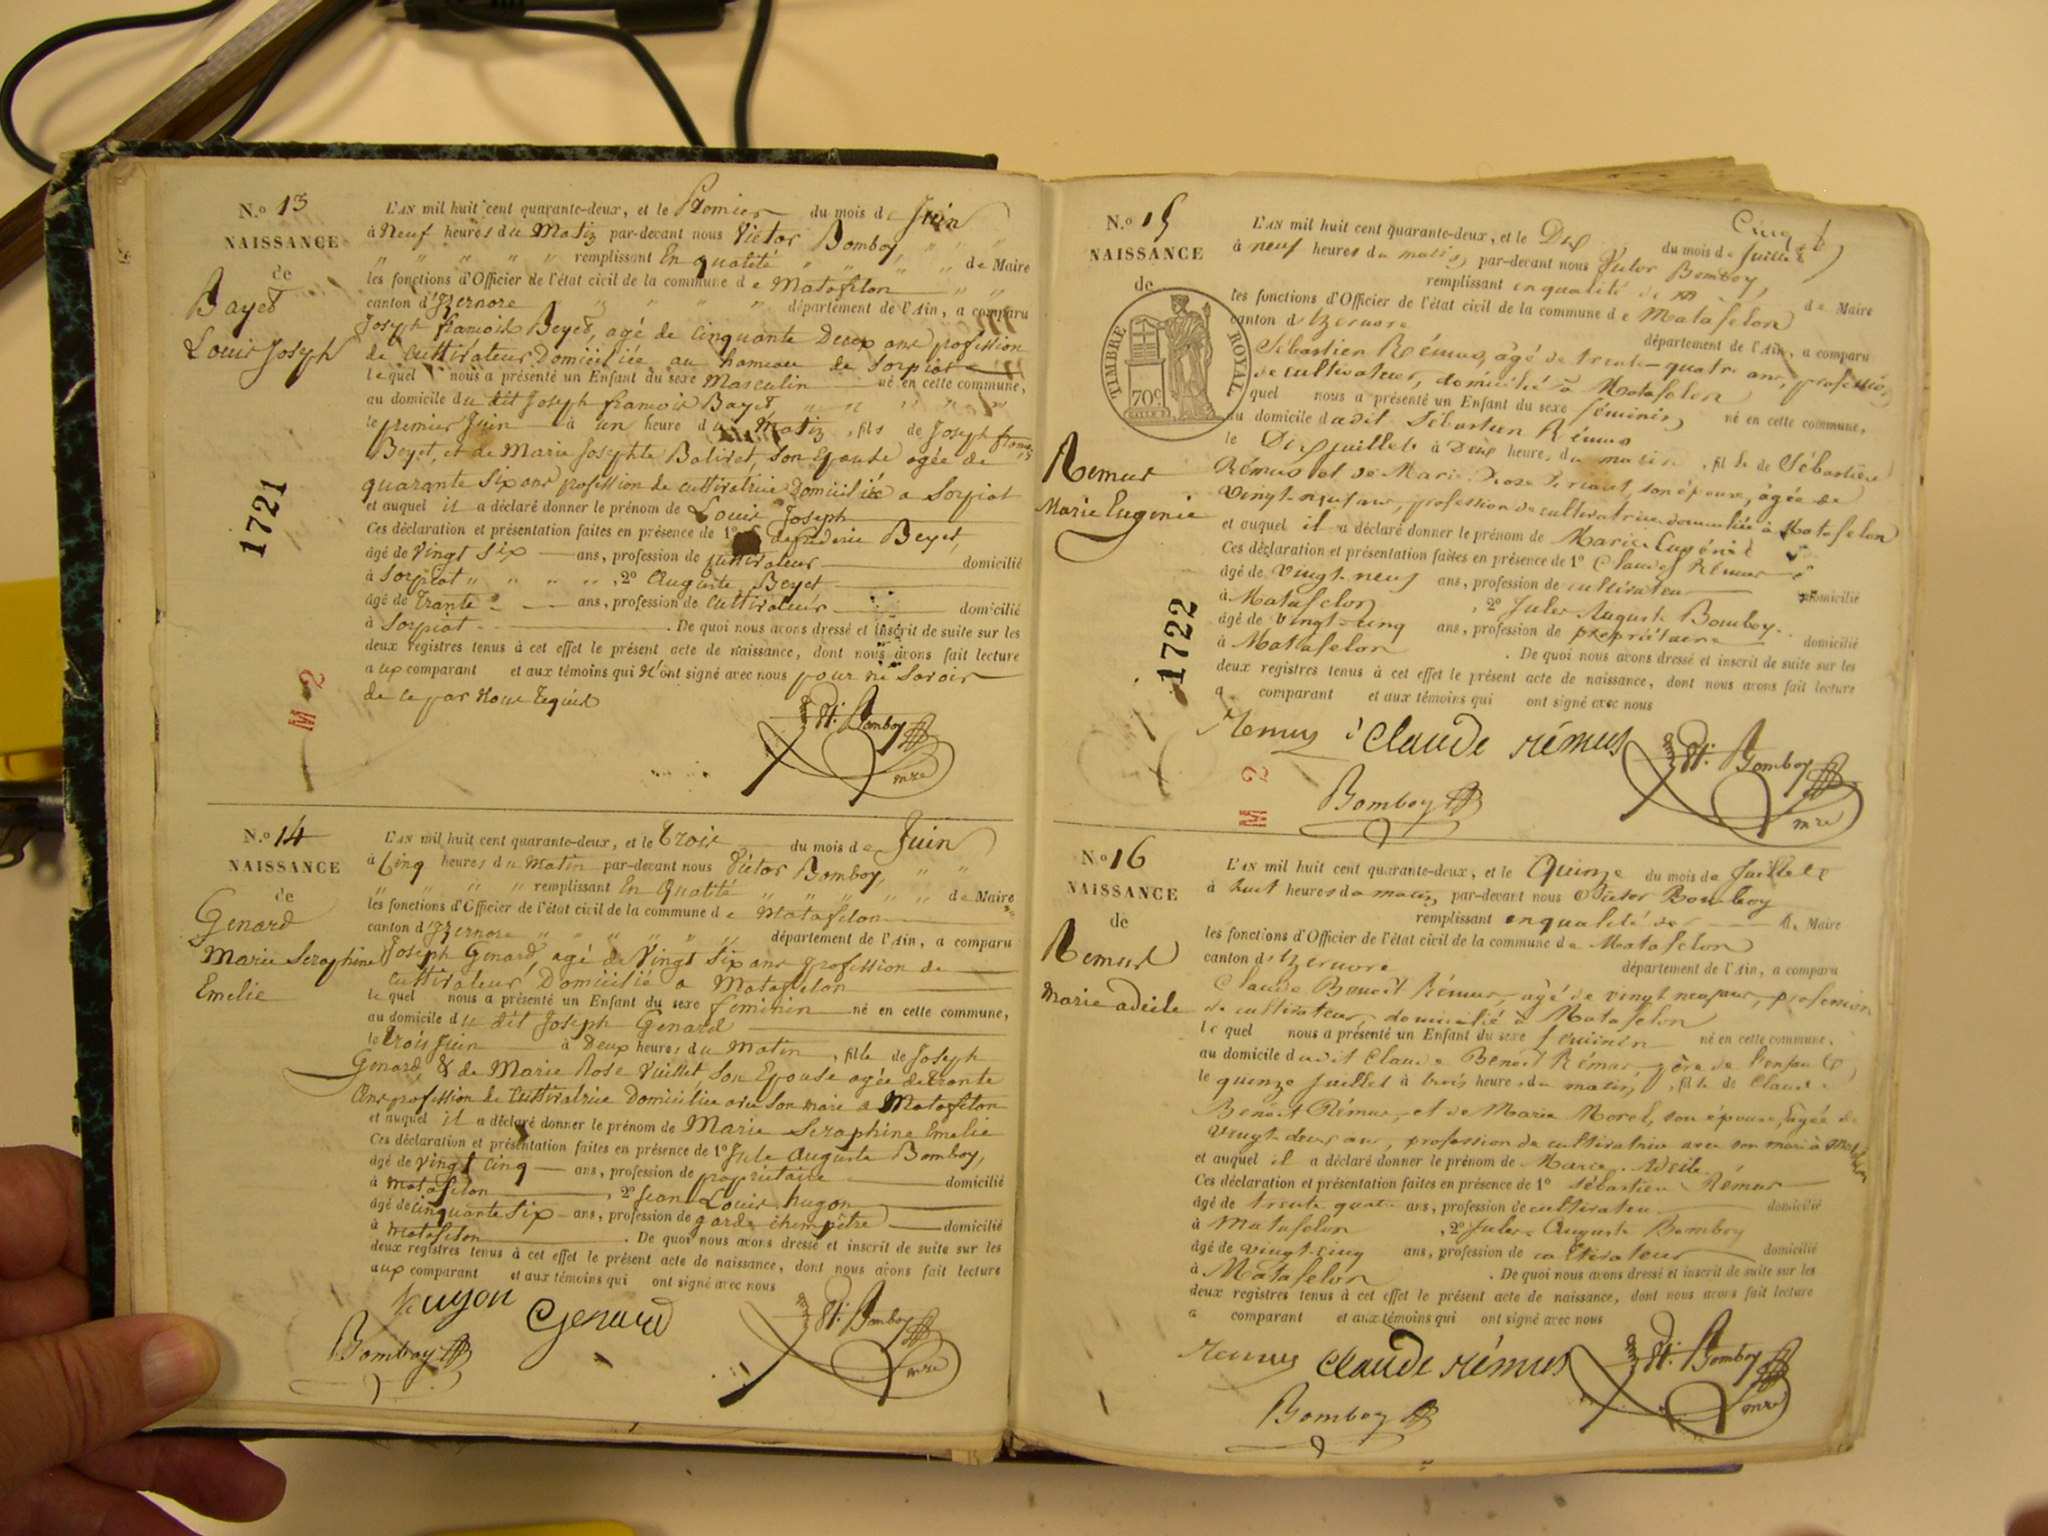 N.o 13
NAISSANCE
de
Bayet
Louis Joseph
1721
M 2
L'AN mil huit cent quarante-deux, et le Premier du mois de Juin
à Neuf heures du Matin par-devant nous Victor Bomboy
remplissant En qualité de Maire
les fonctions d'Officier de l'état civil de la commune de Matafelon
canton d'Izernore département de l'Ain, a comparu
Joseph francois Beyet, agé de cinquante Deux ans profession
de Cultivateur Domiciliée au hameau de Sorpiat
lequel nous a présenté un Enfant du sexe Masculin né en cette commune,
au domicile du dit Joseph francois Bayet
le premier Juin à un heure du Matin, fils de Joseph francois
Beyet, et de Marie Josephte Balivet, son Epouse agée de
quarante Six ans profession de cultivatrice Domiciliée a Sorpiat
et auquel il a déclaré donner le prénom de Louis Joseph
Ces déclaration et présentation faites en présence de 1o Beyet,
âgé de Vingt Six ans, profession de Cultivateur domicilié
à Sorpiat, 2o Auguste Beyet
âgé de Trante ans, profession de Cultivateur domicilié
à Sorpiat. De quoi nous avons dressé et inscrit de suite sur les
deux registres tenus à cet effet le présent acte de naissance, dont nous avons fait lecture
aux comparant et aux témoins qui N'ont signé avec nous pour ne Savoir
de ce par Nous Requis
Vt: Bomboy
mre
N.o 14
NAISSANCE
de
Genard
Marie Seraphine
Emelie
L'AN mil huit cent quarante-deux, et le trois du mois de Juin
à Cinq heures du Matin par-devant nous Victor Bomboy,
remplissant En Qualité de Maire
les fonctions d'Officier de l'état civil de la commune de Matafelon
canton d'Izernore département de l'Ain, a comparu
Joseph Genard, agé de Vingt Six ans profession de
cultivateur Domicilié a Matafelon
lequel nous a présenté un Enfant du sexe feminin né en cette commune,
au domicile du dit Joseph Genard
le trois Juin à Deux heures du Matin, fille de Joseph
Genard & de Marie Rose Vuillet Son Epouse agée de trante
Ans profession de Cultivatrice Domiciliée avec Son mari a Matafelon
et auquel il a déclaré donner le prénom de Marie Seraphine Emelie
Ces déclaration et présentation faites en présence de 1o Jule Auguste Bomboy,
âgé de Vingt Cinq ans, profession de propriétaire domicilié
à Matafelon, 2o Jean Louis hugon
âgé de cinquante Six ans, profession de garde champêtre domicilié
à Matafelon. De quoi nous avons dressé et inscrit de suite sur les
deux registres tenus à cet effet le présent acte de naissance, dont nous avons fait lecture
aux comparant et aux témoins qui ont signé avec nous
hugon Genard Vt: Bomboy
Bomboy mre
N.o 15
NAISSANCE
de
TIMBRE ROYAL
70c
Remus
Marie Eugenie
1722
M 2
Cinq
L'AN mil huit cent quarante-deux, et le Dix du mois de Juillet
à neuf heures du matin par-devant nous Victor Bomboy,
remplissant en qualité de de Maire
les fonctions d'Officier de l'état civil de la commune de Matafelon
canton d'Izernore département de l'Ain, a comparu
Sébastien Rémus, âgé de trente-quatre ans, profession
de cultivateur, domicilié à Matafelon
quel nous a présenté un Enfant du sexe féminin né en cette commune,
au domicile dudit Sébastien Rémus
le Dix juillet à Deux heures du matin, fille de Sébastien
Rémus et de Marie son épouse, âgée de
vingt-neuf ans, profession de cultivatrice domiciliée à Matafelon
et auquel il a déclaré donner le prénom de Marie Eugénie
Ces déclaration et présentation faites en présence de 1o Claude Rémus
âgé de vingt-neuf ans, profession de cultivateur domicilié
à Matafelon, 2o Jules Auguste Bomboy
âgé de vingt-cinq ans, profession de propriétaire domicilié
à Matafelon. De quoi nous avons dressé et inscrit de suite sur les
deux registres tenus à cet effet le présent acte de naissance, dont nous avons fait lecture
a comparant et aux témoins qui ont signé avec nous
Remus Claude rémus Vt: Bomboy
Bomboy mre
No 16
NAISSANCE
de
Remus
Marie adeile
L'AN mil huit cent quarante-deux, et le Quinze du mois de Juillet
à huit heures du matin par-devant nous Victor Bomboy
remplissant en qualité de de Maire
les fonctions d'Officier de l'état civil de la commune de Matafelon
canton d'Izernore département de l'Ain, a comparu
Claude Benoit Rémus, âgé de vingt neuf ans, profession
de cultivateur, domicilié à Matafelon
lequel nous a présenté un Enfant du sexe féminin né en cette commune,
au domicile dudit Claude Benoit Rémus, père de l'enfant
le quinze Juillet à trois heures du matin, fille de Claude
Benoit Rémus, et de Marie Morel, son épouse, âgée de
Vingt deux ans, profession de cultivatrice avec son mari à Matafelon
et auquel il a déclaré donner le prénom de Marie Adeile
Ces déclaration et présentation faites en présence de 1o Sébastien Rémus
âgé de trente quatre ans, profession de cultivateur domicilié
à Matafelon, 2o Jules Auguste Bomboy
âgé de vingt-cinq ans, profession de cultivateur domicilié
à Matafelon. De quoi nous avons dressé et inscrit de suite sur les
deux registres tenus à cet effet le présent acte de naissance, dont nous avons fait lecture
a comparant et aux témoins qui ont signé avec nous
remus Claude rémus Vt: Bomboy
Bomboy mre